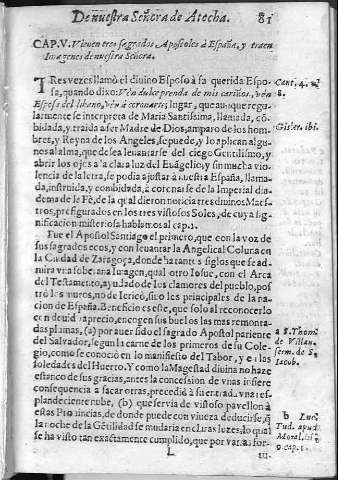 De nuestra Señora de Atocha. 81
CAP. V. Vienen tres sagrados Apostoles à España, y traen
Imagenes de nuestra Señora.
TRes vezes llamò el diuino Esposo à su querida Espo-
sa, quando dixo: Vèn dulce prenda de mis cariños, vèn
Esposa del libano, vèn à coronarte; lugar, que aunque regu-
larmente se interpreta de Maria Santissima, llamada, cõ-
bidada, y traida à ser Madre de Dios, amparo de los hom-
bres, y Reyna de los Angeles, se puede, y lo aplican algu-
nos al alma, que desea leuantarse del ciego Gentilismo, y
abrir los ojos à la clara luz del Euangelio, y sin mucha vio-
lencia de la letra, se podia ajustar à nuestra España, llama-
da, instruida, y combidada, à coronarse de la Imperial dia-
dema de le Fè, de la qual dieron noticia tres diuinos Maes-
tros, prefigurados en los tres vistosos Soles, de cuya sig-
nificacion misteriosa hablamos al cap. 1.
Fue el Apostol Santiago el primero, que con la voz de
sus sagrados ecos, y con leuantar la Angelical Coluna en
la Ciudad de Zaragoça, donde ha tantos siglos que se ad-
mira vna soberana Imagen, qual otro Iosue, con el Arca
del Testamento, ayudado de los clamores del pueblo, pos
trò los muros, no de Iericò, sino los principales de la na-
cion de España. Beneficio es este, que solo al reconocerlo
con deuido aprecio, encogen sus buelos las mas remonta-
das plumas, (a) por auer sido el sagrado Apostol pariente
del Salvador, segun la carne de los primeros de su Cole-
gio, como se conociò en lo manifiesto del Tabor, y en las
soledades del Huerto. Y como la Magestad diuina no haze
estanco de sus gracias, antes la concession de vnas infiere
consequencia a sacar otras, precediò à su entrada vna res-
plandeciente nube, (b) que servia de vistoso pavellon à
estas Prouincias, de donde puede con viueza deducirse, q
la noche de la Gẽtilidad se mudaria en claras luzes; lo qual
se ha visto tan exactamente cumplido, que por varias for-
L
Cant. 4. v.
8.
Gisler. ibi.
a S. Thom.
de Villan.
serm. de S.
Iacob.
b Luc.
Tud. apud
Moral. lib
9 cap. 1.